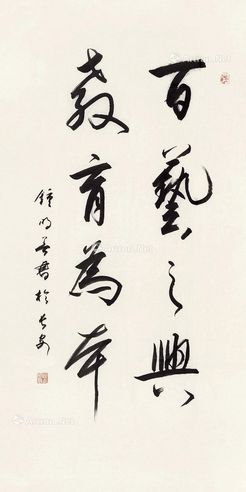 百藝之興
教育為本
鍾明善書於長安